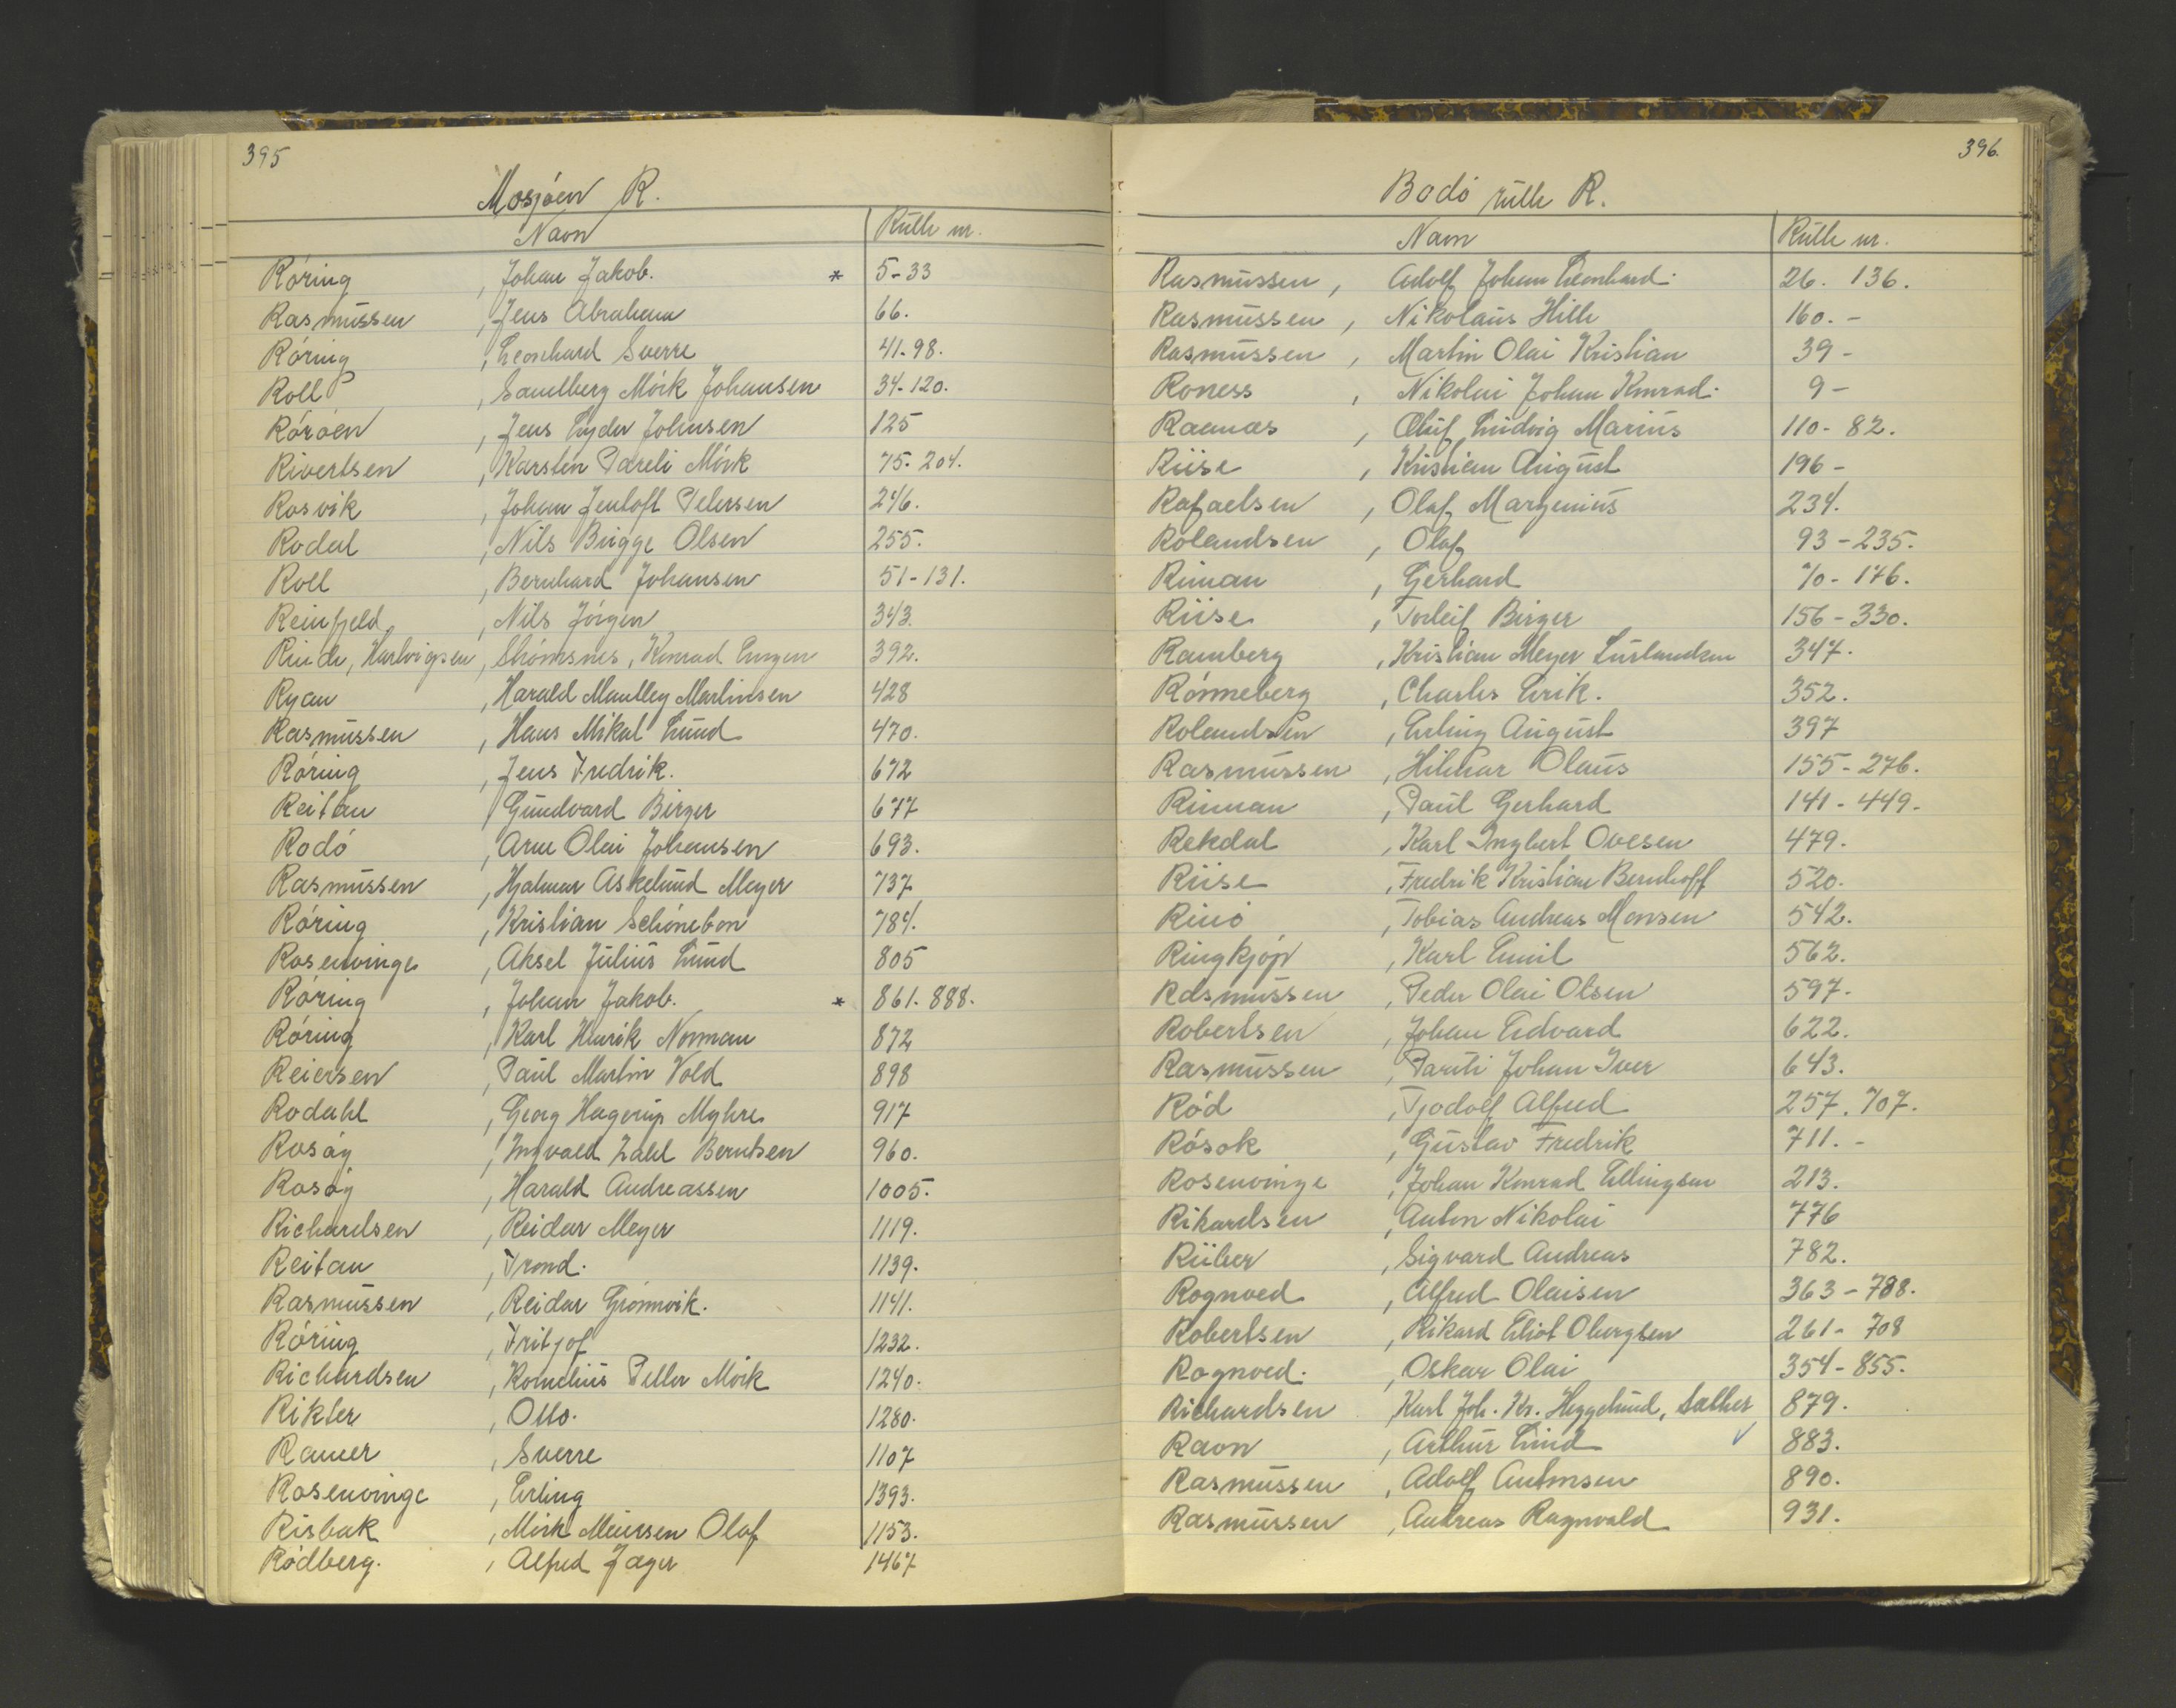 395
Mosjóen R.
Navn Rulle nr.
Róring , Johan Jakob. * 5-33
Rasmussen , Jens Abraham 66.
Róring , Leonhard Sverre 41-98.
Roll , Sandberg Mórk Johansen 34-120.
Róróen , Jens Lyder Johnsen 125
Rivertsen , Karsten Pareli Mórk 75-204.
Rosvik , Johan Jentoft Petersen 246.
Rodal , Nils Brigge Olsen 255.
Roll , Bernhard Johansen 51-131.
Reinfjeld , Nils Jórgen 343.
Hartvigsen, Konrad 392.
Ryan , Harald Martinsen 428
Rasmussen , Hans Mikal Lund 470.
Róring , Jens Fredrik. 672
Reitan , Gundvard Birger 677
Rodó , Arne Olai Johansen 693.
Rasmussen , Hjalmar Askelund Meyer 737
Róring , Kristian Schónebon 784.
Rosenvinge , Aksel Julius Lund 805
Róring , Johan Jakob. * 861. 888.
Róring , Karl Henrik Norman 872
Reiersen , Paul Martin Vold 898
Rodahl , Georg Hagerup Myhre 917
Rosóy , Ingvald Zahl Berntsen 960.
Rosóy , Harald Andreassen 1005.
Richardsen , Reidar Meyer 1119.
Reitan , Trond. 1139.
Rasmussen , Reidar Grónnvik. 1141.
Róring , Fritjof 1232.
Richardsen , Kornelius Petter Mórk 1240.
Rikter , Otto. 1280.
Ramer , Sverre 1107
Rosenvinge , Erling 1393.
Risbak , Mórk Meursen Olaf 1153.
Ródberg. , Alfred Jager 1467
396.
Bodó rulle R.
Navn Rulle nr.
Rasmussen , Adolf Johan Leonhard. 26. 136.
Rasmussen , Nikolaus Hille 160. -
Rasmussen , Martin Olai Kristian 39 -
Roness , Nikolai Johan Konrad. 9 -
Raanaas , Oluf Ludvig Marius 110- 82.
Riise , Kristian August 196 -
Rafaelsen , Olaf Margenius 234.
Rolandsen , Olaf 93 - 235.
Rinnan , Gerhard 70 - 176.
Riise , Torleif Birger 156 - 330.
Ramberg , Kristian Meyer 347.
Rónneberg , Charles Erik. 352.
Rolandsen , Erling August 397
Rasmussen , Hilmar Olaus 155- 276.
Rinnan , Paul Gerhard 141 - 449.
Rekdal , Karl Ingbert Ovesen 479.
Riise , Fredrik Kristian Bernhoff 520.
, Tobias Andreas Monsen 542.
Ringkjóp , Karl Emil 562.
Rasmussen , Peder Olai Olsen 597.
Robertsen , Johan Edvard 622.
Rasmussen , Johan Iver 643.
Ród , Tjodolf Alfred 257. 707.
Rósok , Gustav Fredrik 711. -
Rosenvinge , Johan Konrad Ellingsen 213.
Rikardsen , Anton Nikolai 776
Riiber , Sigvard Andreas 782.
Rognved , Alfred Olaisen 363 - 788.
Robertsen , Rikard Eliot 261 - 708
Rognved. , Oskar Olai 354 - 855.
Richardsen Karl Joh. Kr. Heggelund, Sather 879.
Ravn , Arthur Lind ✓ 883.
Rasmussen , Adolf Antonsen 890.
Rasmussen , Andreas Ragnvald 931.